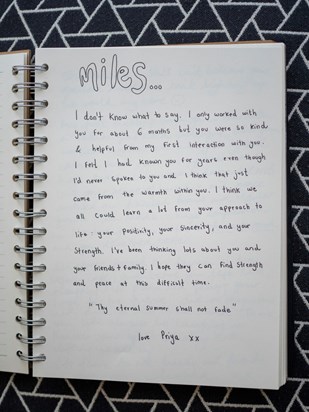 miles...
I don't know what to say. I only worked with
you for about 6 months but you were so kind
& helpful from my first interaction with you.
I felt I had known you for years even though
I'd never spoken to you and I think that just
came from the warmth within you. I think we
all could learn a lot from your approach to
life: your positivity, your sincerity, and your
strength. I've been thinking lots about you and
your friends + family. I hope they can find strength
and peace at this difficult time.
"Thy eternal summer shall not fade"
love Priya xx